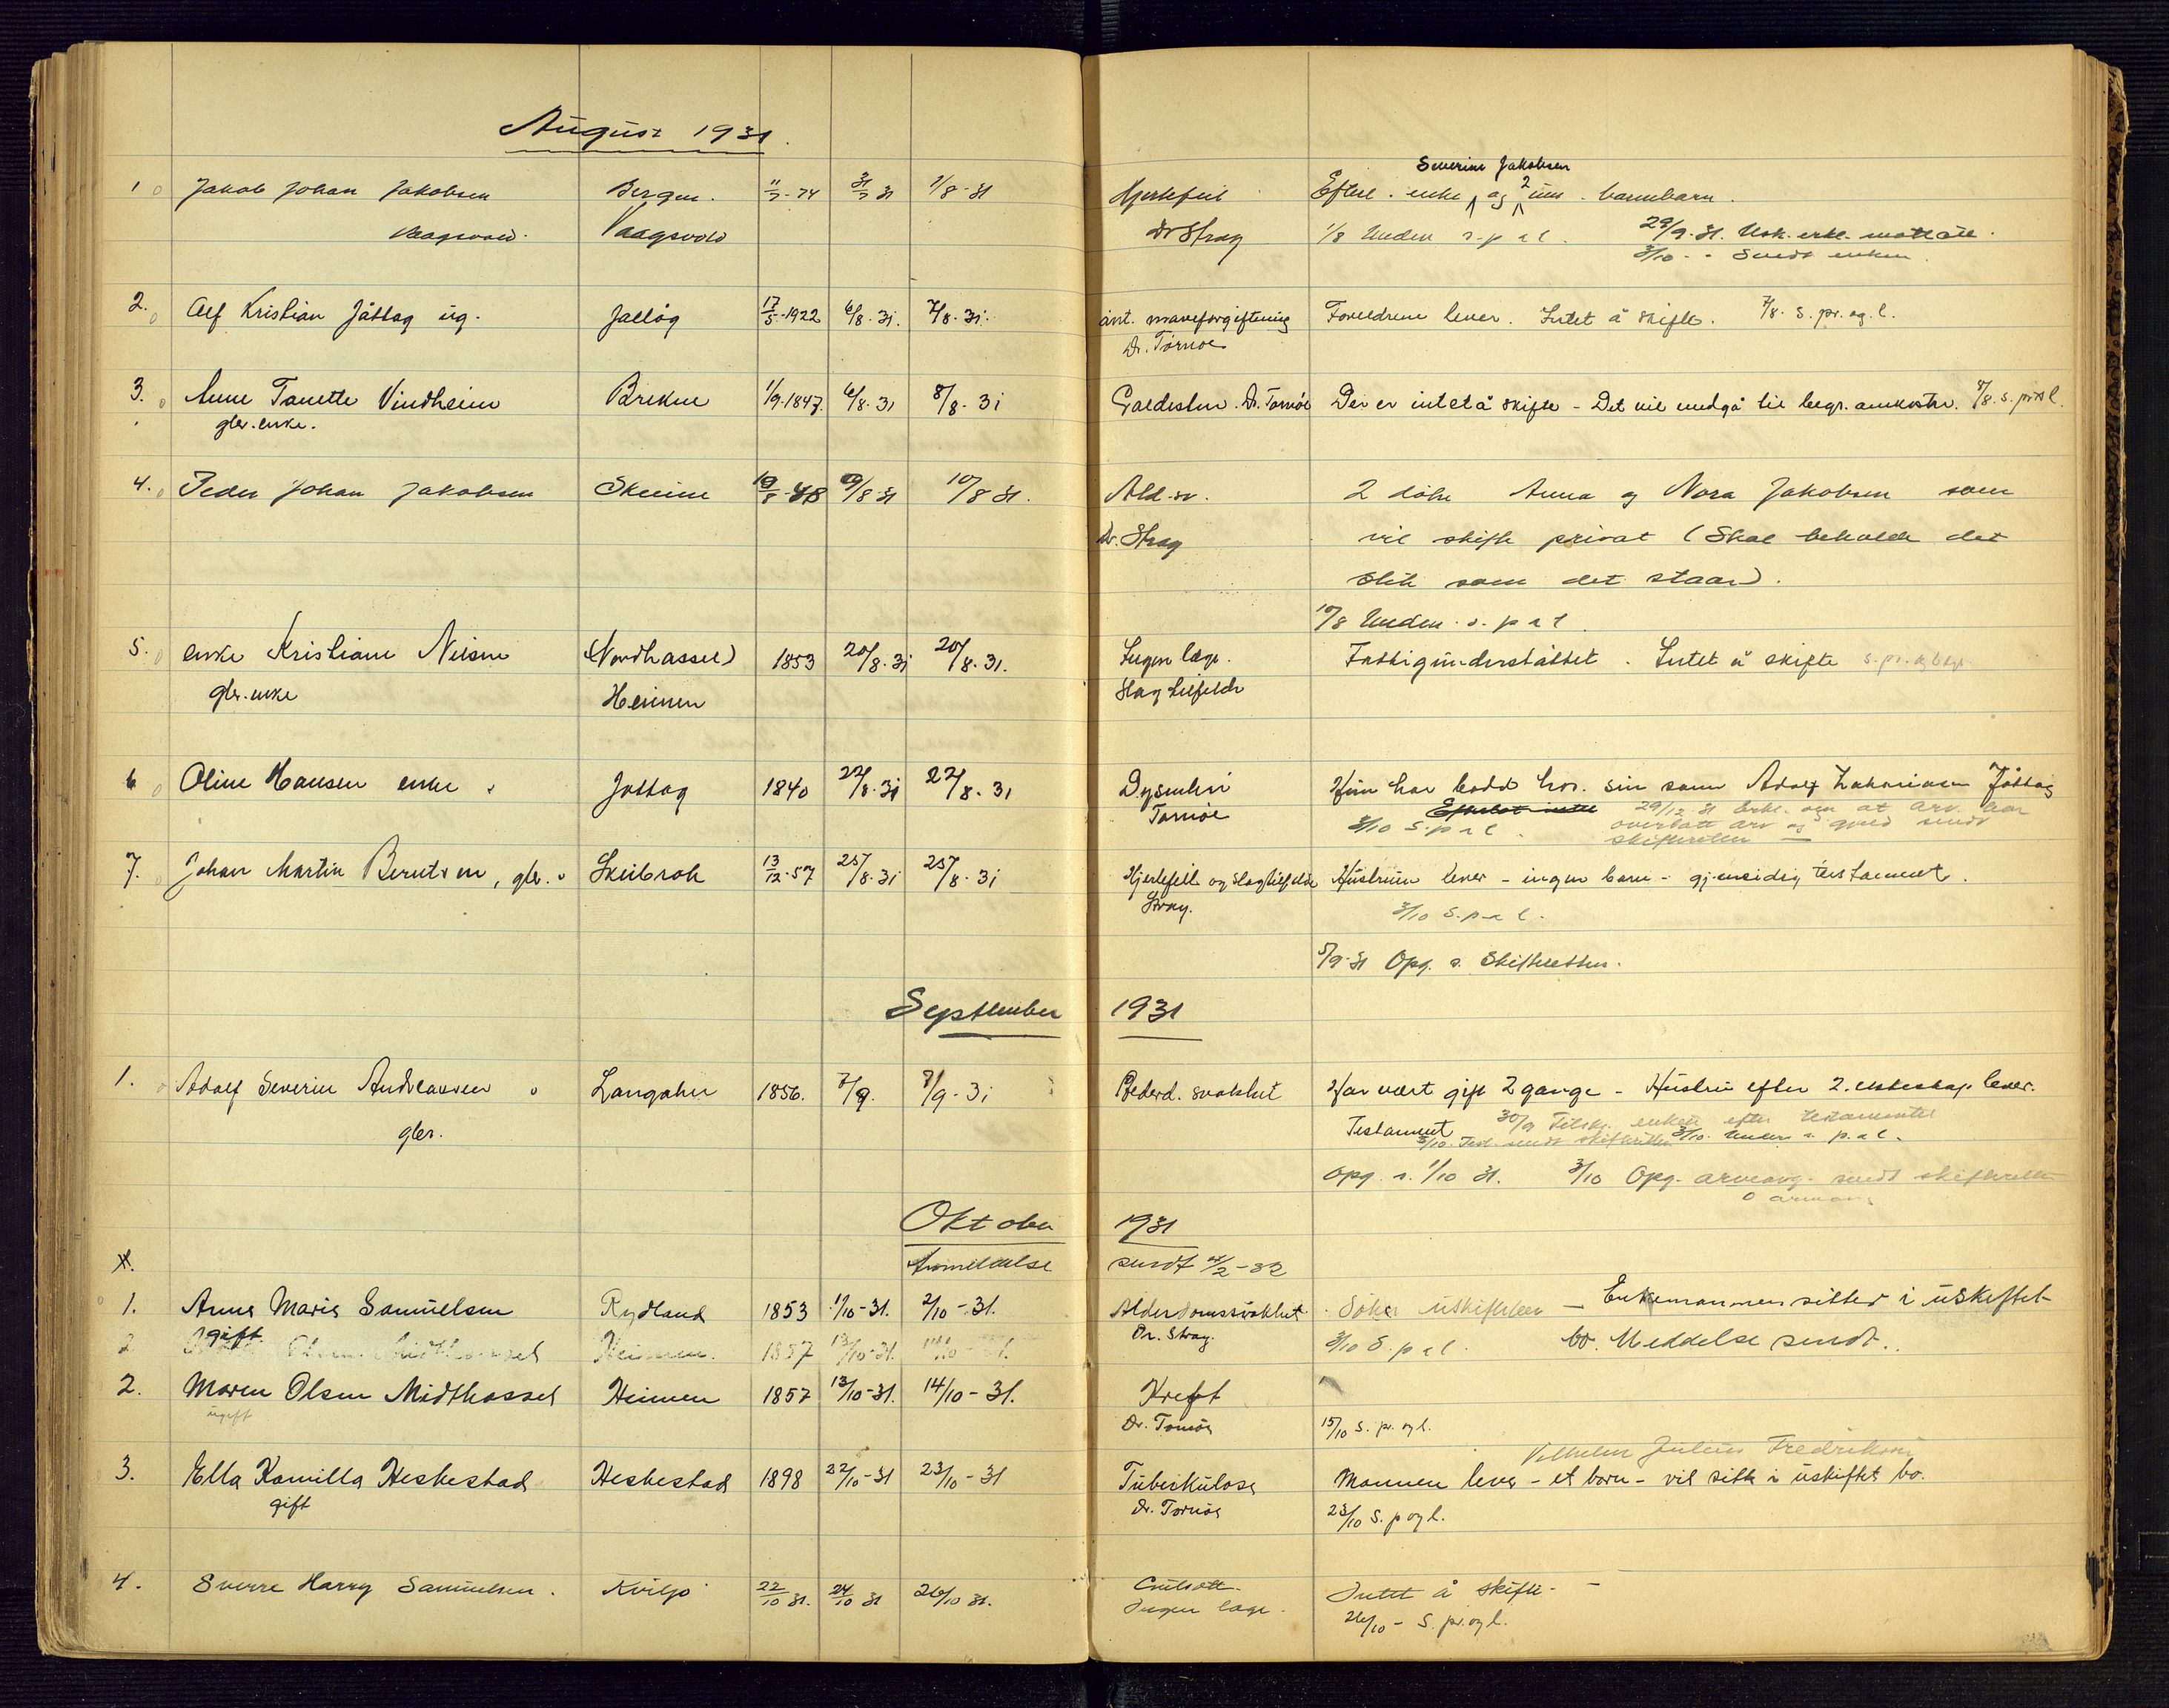 August 1931.
1 Jakob Johan Jakobsen Bergen. 11/7-74 31/7 31 1/8-31 Hjertefeil Efterl. enke Severine Jakobsen og 2 um. barnebarn.
Vaagsvold. Vaagsvold Dr Stray 1/8 Unden s.p a l. 29/9-31. Usk. erkl. mottatt.
3/10 - - Sendt enken.
2. Alf Kristian Jåttog ug. Jåttog 17/5-1922 6/8-31. 7/8-31. ant. maveforgiftning Foreldrene lever. Intet å skifte. 7/8. s. pr. og. l.
Dr. Tornøe
3. Anne Tanette Vindheim Brekne 1/9-1847. 6/8-31 8/8-31 Galdesten. Dr. Tornøe Der er intet å skifte - Det vil medgå til begr. omkostn. 8/8. s. pr. l.
glr. enke.
4. Peder Johan Jakobsen Skeime 19/8-48 9/8-31 10/8 31. Ald. sv. 2 døtre Anna og Nora Jakobsen som
Dr. Stray vil skifte privat (Skal beholde det
slik som det staar).
10/8 Unden. s. p a l.
5. enke Kristiane Nilsen (Nordhassel) 1853 20/8-31 20/8-31. Ingen læge. Fattigunderstøttet. Intet å skifte s. pr. og l.
glr. enke Heimen Slagtilfelde
6 Oline Hansen enke Jøttog 1840 22/8-31 22/8-31 Dysenteri Hun har bodd hos sin sønn Adolf Zakariasen Jåttog
Tornøe 29/12 31 Erkl. om at arv. har
3/10 S. p a l. overlatt arv og gjeld sendt
skifteretten
7. Johan Martin Berntsen, glr. Skeibrok 13/12-57 25/8-31 25/8-31 Hjertefeil og slagtilfelde Hustruen lever - ingen barn - gjensidig testament.
Stray. 3/10 S. p a l.
5/9-31 Opg. s. Skifteretten.
September 1931
1. Adolf Severin Andreassen Langåker 1856. 7/9. 8/9-31 Alderd. svakhet Har vært gift 2 gange - Hustru efter 2. ekteskap lever.
glr. Testament 30/9 Tilskr. enken efter testamentet
3/10. Test. sendt skifteretten 3/10. Unden s. p. a l.
Opg. s. 1/10 31. 3/10 Opg. arveavg. sendt skifteretten
0 arveavg.
Oktober 1931
Anmeldelse sendt 4/2-32
1. Anna Marie Samuelsen Rydland 1853 1/10-31. 2/10-31. Alderdomssvakhet. Søker uskifteten — Enkemannen sitter i uskiftet
gift Dr. Stray. 3/10 S. p a l. bo. Meddelse sendt.
2 Olsen Midthassel Heimen. 1857 13/10-31. 14/10-31.
2. Maren Olsen Midthassel Heimen 1857 13/10-31. 14/10-31. Kreft
ugift Dr. Tornøe 15/10 s. pr. og l.
Vilhelm Julius Fredriksen
3. Ella Kamilla Heskestad Heskestad 1898 22/10-31 23/10-31 Tuberkulose Mannen lever - et barn - vil sitte i uskiftet bo.
gift Dr. Tornøe 23/10 S. p og l.
4. Sverre Harry Samuelsen. Kviljo 22/10 31. 24/10 31 26/10 31. Intet å skifte -
Ingen læge. 26/10 - S. pr. og l.